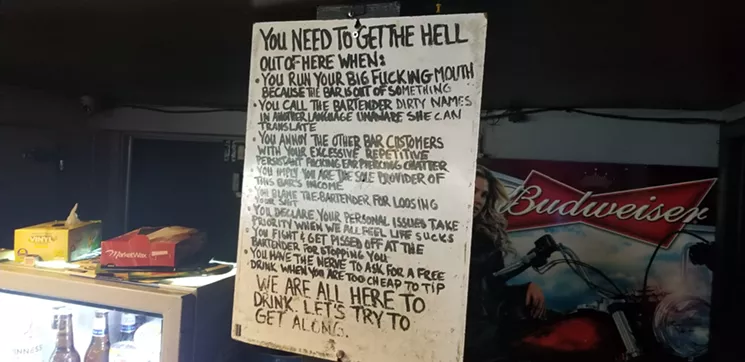 YOU NEED TO GET THE HELL
OUT OF HERE WHEN:
• YOU RUN YOUR BIG FUCKING MOUTH
BECAUSE THE BAR IS OUT OF SOMETHING
• YOU CALL THE BARTENDER DIRTY NAMES
IN ANOTHER LANGUAGE UNAWARE SHE CAN
TRANSLATE
• YOU ANNOY THE OTHER BAR CUSTOMERS
WITH YOUR EXCESSIVE REPETITIVE
PERSISTANT FUCKING EAR PIERCING CHATTER
• YOU IMPLY YOU ARE THE SOLE PROVIDER OF
THIS BAR'S INCOME
• YOU BLAME THE BARTENDER FOR LOOSING
YOUR SHIT
• YOU DECLARE YOUR PERSONAL ISSUES TAKE
PRIORITY WHEN WE ALL FEEL LIFE SUCKS
• YOU FIGHT & GET PISSED OFF AT THE
BARTENDER FOR STOPPING YOU
• YOU HAVE THE NERVE TO ASK FOR A FREE
DRINK WHEN YOU ARE TOO CHEAP TO TIP
WE ARE ALL HERE TO
DRINK. LET'S TRY TO
GET ALONG.
Budweiser
VINYL
MarketWax